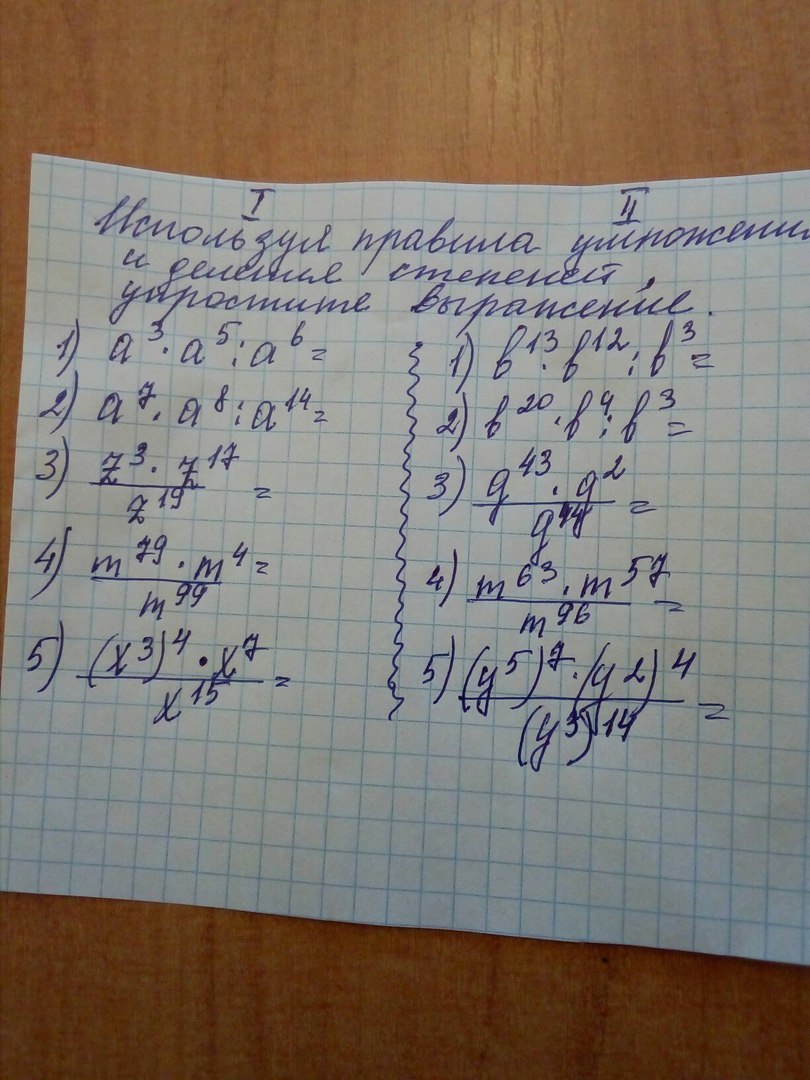 I II
Используя правила умножения
и деления степеней,
упростите выражение.
1) a³ · a⁵ : a⁶ =
2) a⁷ · a⁸ : a¹⁴ =
3) z³ · z¹⁷
z¹⁹ =
4) m⁷⁹ · m⁴ =
m⁹⁹
5) (x³)⁴ · x⁷
x¹⁵ =
1) b¹³ · b¹² : b³ =
2) b²⁰ · b⁴ : b³ =
3) g⁴³ · g² =
g⁴⁴
4) m⁶³ · m⁵⁷ =
m⁹⁶
5) (y⁵)⁷ · (y²)⁴ =
(y³)¹⁴